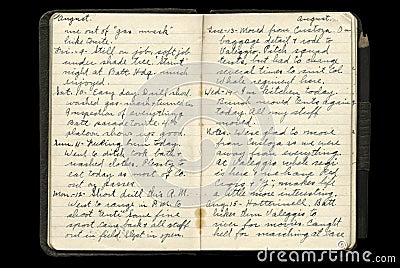 August
me out of "gas mask"
like home.
Fri-9- Still on job, soft job
under shade tree. "Stunt"
night at Batt. Hdq. much
enjoyed.
Sat. 10- Easy day.
washed gas mask,
Inspection of everything
Batt parade
platoon shows up good.
Sun-11- Fucking bum today.
Went to ditch, took bath &
washed clothes. Plenty to
eat today as most of Co.
out on passes.
Mon-12- Short drill this A.M.
Went to range in P.M. to
shoot "Ents". Some fine
sport. Carry packs all stuff
out in field. Slept in open.
August
Tues-13- Moved from Custoza. On
baggage detail & roll to
Valeggio. Pitch squad
tents, but had to change
several times to suit Col
Whole regiment here.
Wed-14- In kitchen today.
Bunch moved tents again
today. All my stuff
moved.
Notes. Were glad to move
from Custoza so we were
away from everything.
at Valeggio whole regt
is here & we have Red
Cross & "Y", makes life
a little more interesting.
Aug-15- Hot Batt
hikes from Valeggio to
river for movies. Caught
hell for marching at ease